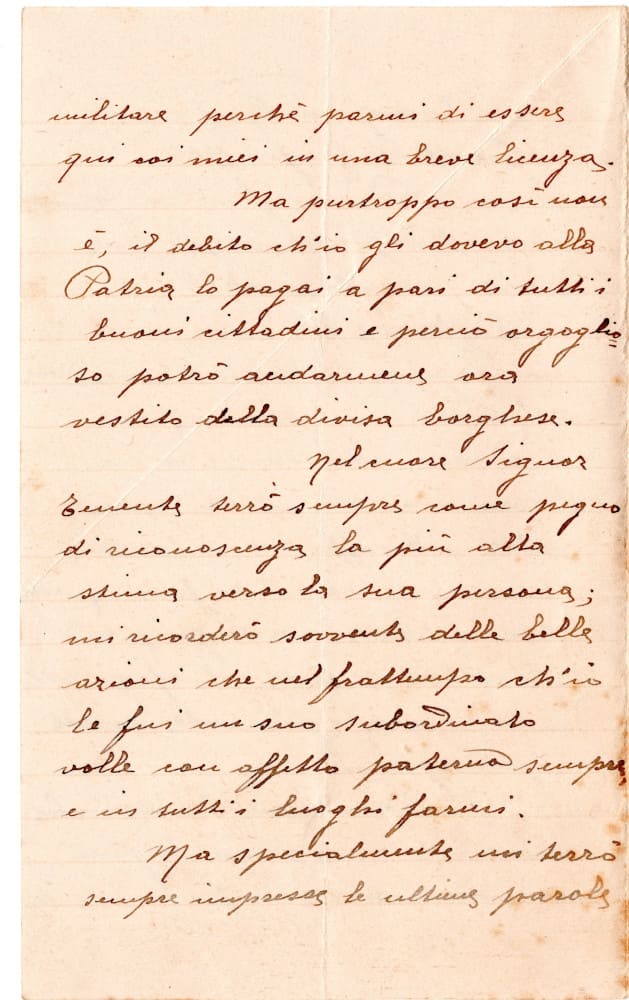 militare perchè parmi di essere
qui coi miei in una breve licenza.
Ma purtroppo così non
è, il debito ch'io gli dovevo alla
Patria lo pagai a pari di tutti i
buoni cittadini e perciò orgoglio=
so potrò andarmene ora
vestito della divisa borghese.
Nel cuore Signor
Tenente terrò sempre come pegno
di riconoscenza la più alta
stima verso la sua persona;
mi ricorderò sovvente delle belle
azioni che nel frattempo ch'io
le fui un suo subordinato
volle con affetto paterno sempre,
e in tutti i luoghi farmi.
Ma specialmente mi terrò
sempre impresse le ultime parole